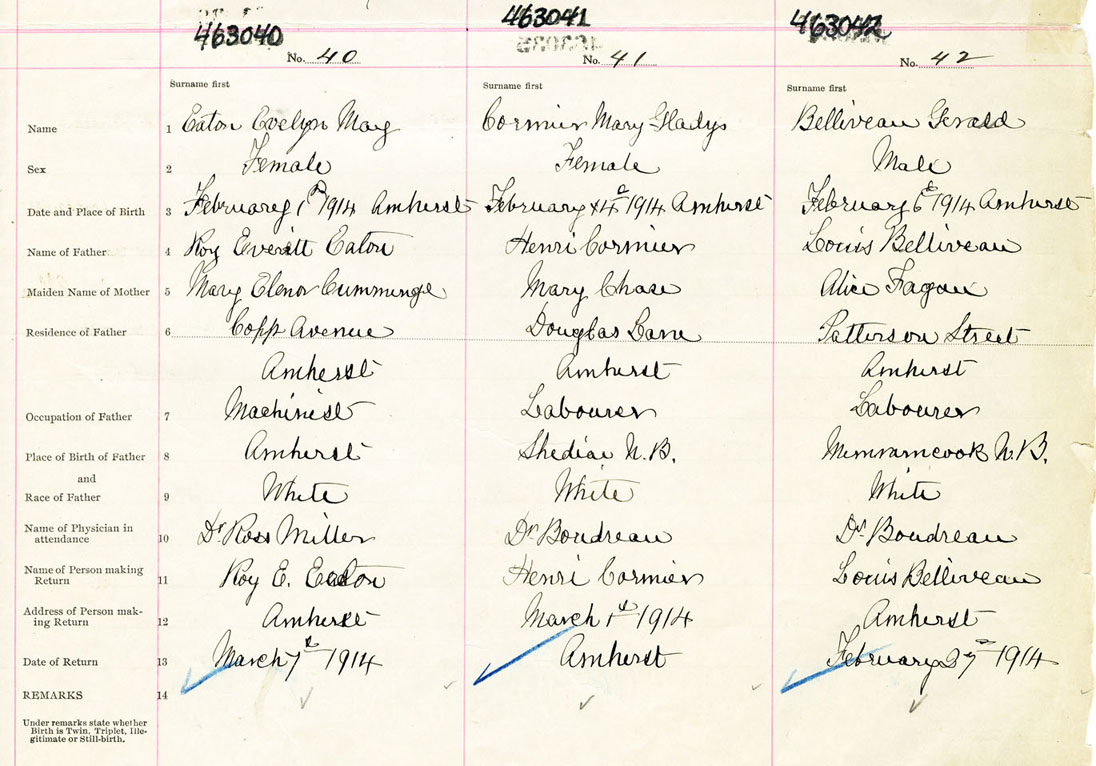 463040 463041 463042
No. 40 No. 41 No. 42
Surname first Surname first Surname first
Name 1 Eaton Evelyn May Cormier Mary Gladys Belliveau Gerald
Sex 2 Female Female Male
Date and Place of Birth 3 February 1st 1914 Amherst February 4th 1914 Amherst February 6th 1914 Amherst
Name of Father 4 Roy Everitt Eaton Henri Cormier Louis Belliveau
Maiden Name of Mother 5 Mary Elenor Cummings Mary Chase Alice Fagan
Residence of Father 6 Copp Avenue Douglas Lane Patterson Street
Amherst Amherst Amherst
Occupation of Father 7 Machinist Labourer Labourer
Place of Birth of Father 8 Amherst Shediac N.B. Memramcook N.B.
and
Race of Father 9 White White White
Name of Physician in
attendance 10 Dr Ross Miller Dr Boudreau Dr Boudreau
Name of Person making
Return 11 Roy E. Eaton Henri Cormier Louis Belliveau
Address of Person mak-
ing Return 12 Amherst March 1st 1914 Amherst
Date of Return 13 March 7th 1914 Amherst February 27th 1914
REMARKS 14
Under remarks state whether
Birth is Twin, Triplet, Ille-
gitimate or Still-birth.